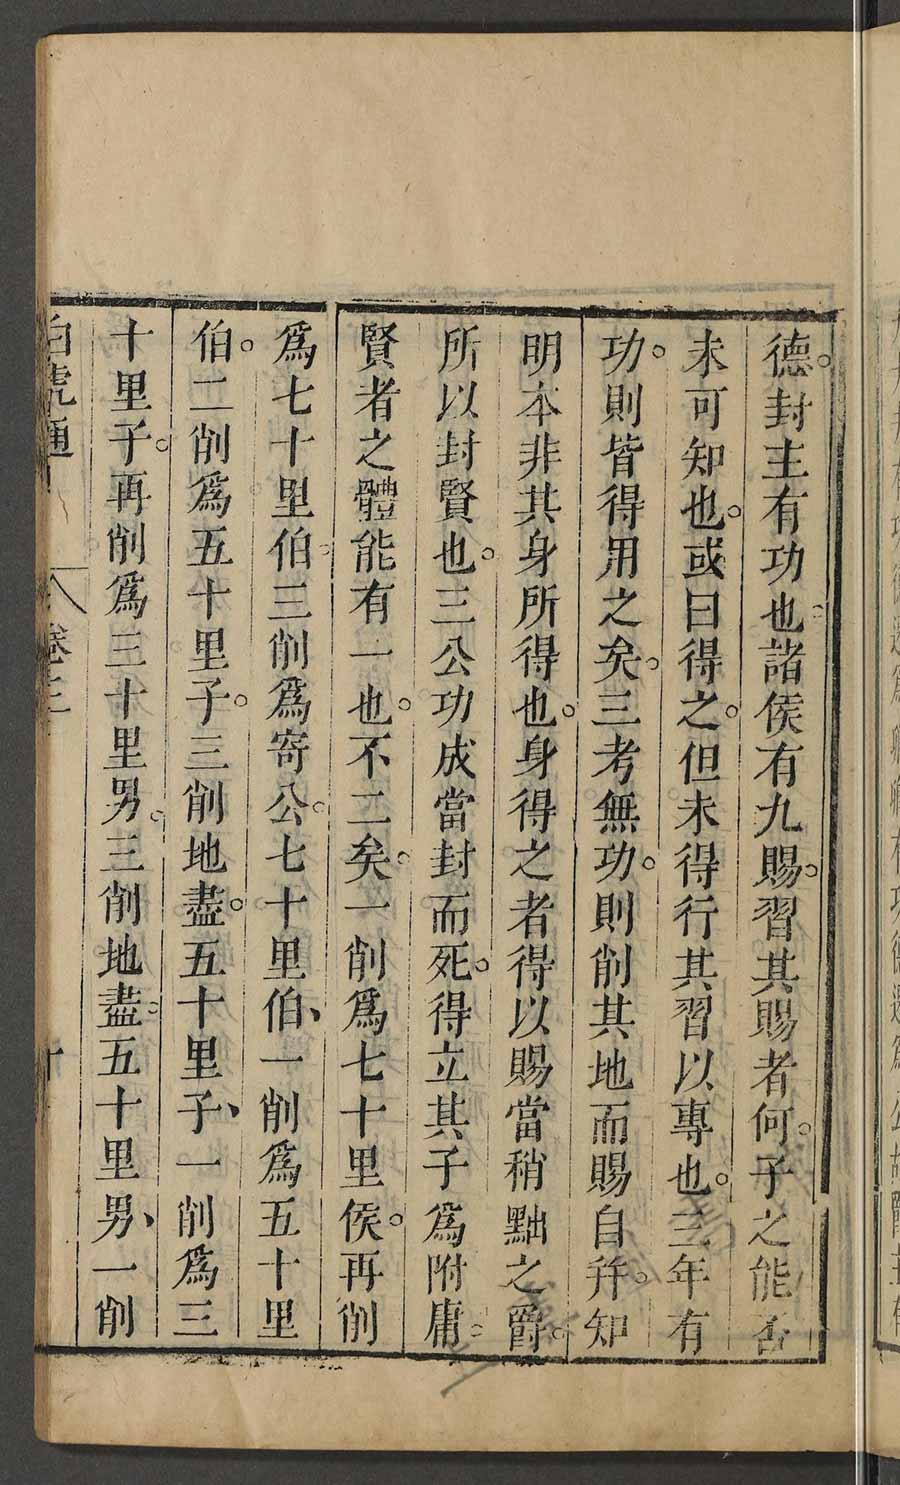 德。封主有功也。諸侯有九賜。習其賜者何。子之能否
未可知也。或曰得之。但未得行其習以專也。三年有
功。則皆得用之矣。三考無功。則削其地而賜自并。知
明本非其身所得也。身得之者得以賜當稍黜之爵。
所以封賢也。三公功成當封而死。得立其子爲附庸。
賢者之體能有一也。不二矣。一削爲七十里侯。再削
爲七十里伯。三削爲寄公。七十里伯、一削爲五十里
伯。二削爲五十里子。三削地盡。五十里子、一削爲三
十里子。再削爲三十里男。三削地盡。五十里男、一削
白虎通 卷三 十